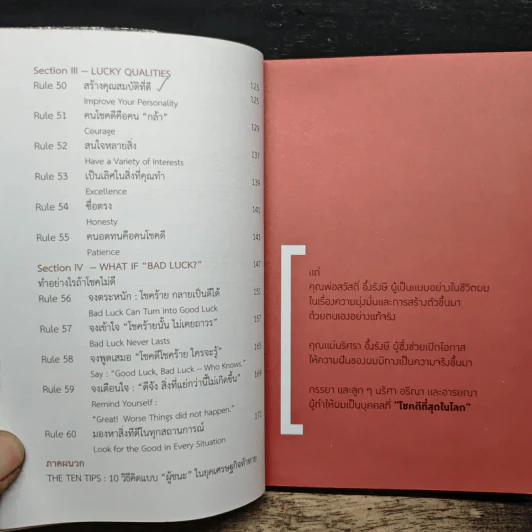 Section III – LUCKY QUALITIES
Rule 50 สร้างคุณสมบัติที่ดี 125
Improve Your Personality 125
Rule 51 คนโชคดีคือคน “กล้า” 129
Courage
Rule 52 สนใจหลายสิ่ง 137
Have a Variety of Interests
Rule 53 เป็นเลิศในสิ่งที่คุณทำ 139
Excellence
Rule 54 ซื่อตรง 141
Honesty
Rule 55 คนอดทนคือคนโชคดี 145
Patience
Section IV – WHAT IF “BAD LUCK?” 147
ทำอย่างไรถ้าโชคไม่ดี
Rule 56 จงตระหนัก : โชคร้าย กลายเป็นดีได้ 151
Bad Luck Can Turn into Good Luck
Rule 57 จงเข้าใจ “โชคร้ายนั้น ไม่เคยถาวร” 157
Bad Luck are Never Lasted
Rule 58 จงพูดเสมอ “โชคดีโชคร้าย ใครจะรู้” 165
Say : “Good Luck, Bad Luck -- Who Knows.”
Rule 59 จงเตือนใจ : “ดีจัง สิ่งที่แย่กว่านี้ไม่เกิดขึ้น” 169
Remind Yourself :
“Great! Worse Things did not happen.”
Rule 60 มองหาสิ่งที่ดีในทุกสถานการณ์ 171
Look for the Good in Every Situation
ภาคผนวก
THE TEN TIPS : 10 วิธีคิดแบบ “ผู้ชนะ” ในยุคเศรษฐกิจท้าทาย
แด่
คุณพ่อสวัสดิ์ อึ้งรังษี ผู้เป็นแบบอย่างในชีวิตผม
ในเรื่องความมุ่งมั่นและการสร้างตัวขึ้นมา
ด้วยตนเองอย่างแท้จริง
คุณแม่บริศรา อึ้งรังษี ผู้ซึ่งช่วยเปิดโอกาส
ให้ความฝันของผมมีทางเป็นความจริงขึ้นมา
ภรรยา และลูก ๆ นริศา อริณา และอารยณา
ผู้ทำให้ผมเป็นบุคคลที่ "โชคดีที่สุดในโลก"